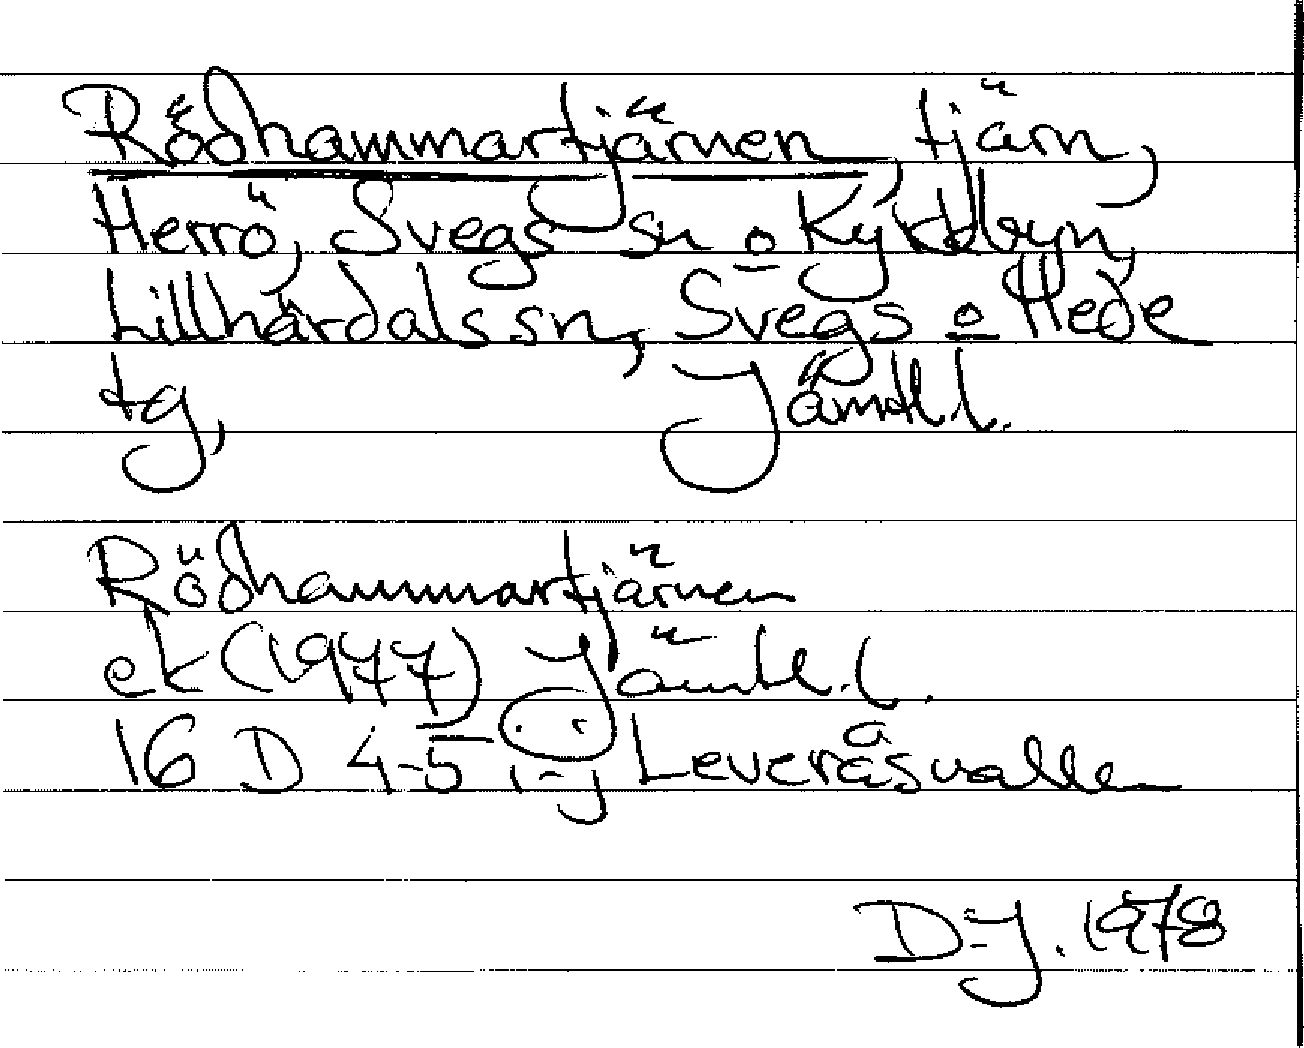 Rödhammartjärnen, tjärn,
Herrö, Svegs sn o Kyrkbyn,
Lillhärdals sn, Svegs o Hede
tg, Jämtl.l.
Rödhammartjärnen
ek (1977) Jämtl.l.
16 D 4-5 i-j Leveråsvallen
D-J. 1978